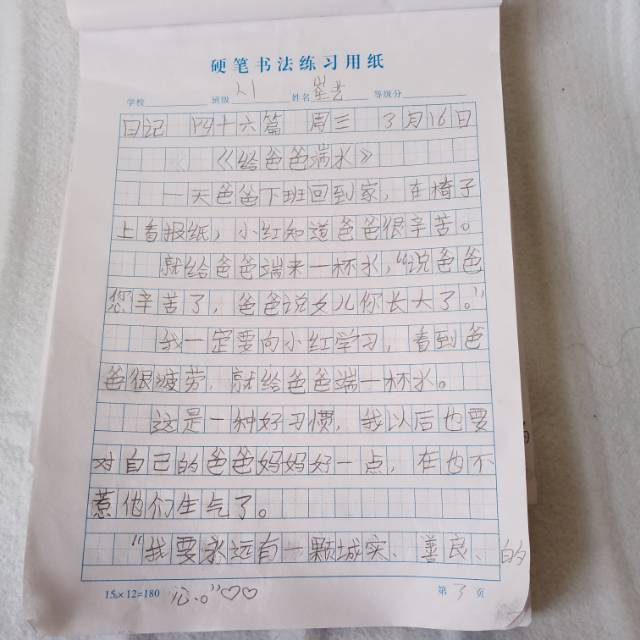 硬笔书法练习用纸
学校 班级 姓名 等级分
日记 四十六篇 周三 3月16日
《给爸爸端水》
一天爸爸下班回到家，在椅子
上看报纸，小红知道爸爸很辛苦。
就给爸爸端来一杯水，“说爸爸
您辛苦了，爸爸说女儿你长大了。”
我一定要向小红学习，看到爸
爸很疲劳，就给爸爸端一杯水。
这是一种好习惯，我以后也要
对自己的爸爸妈妈好一点，在也不
惹他们生气了。
“我要永远有一颗诚实、善良、的
15×12=180 心。”♡♡ 第 3 页